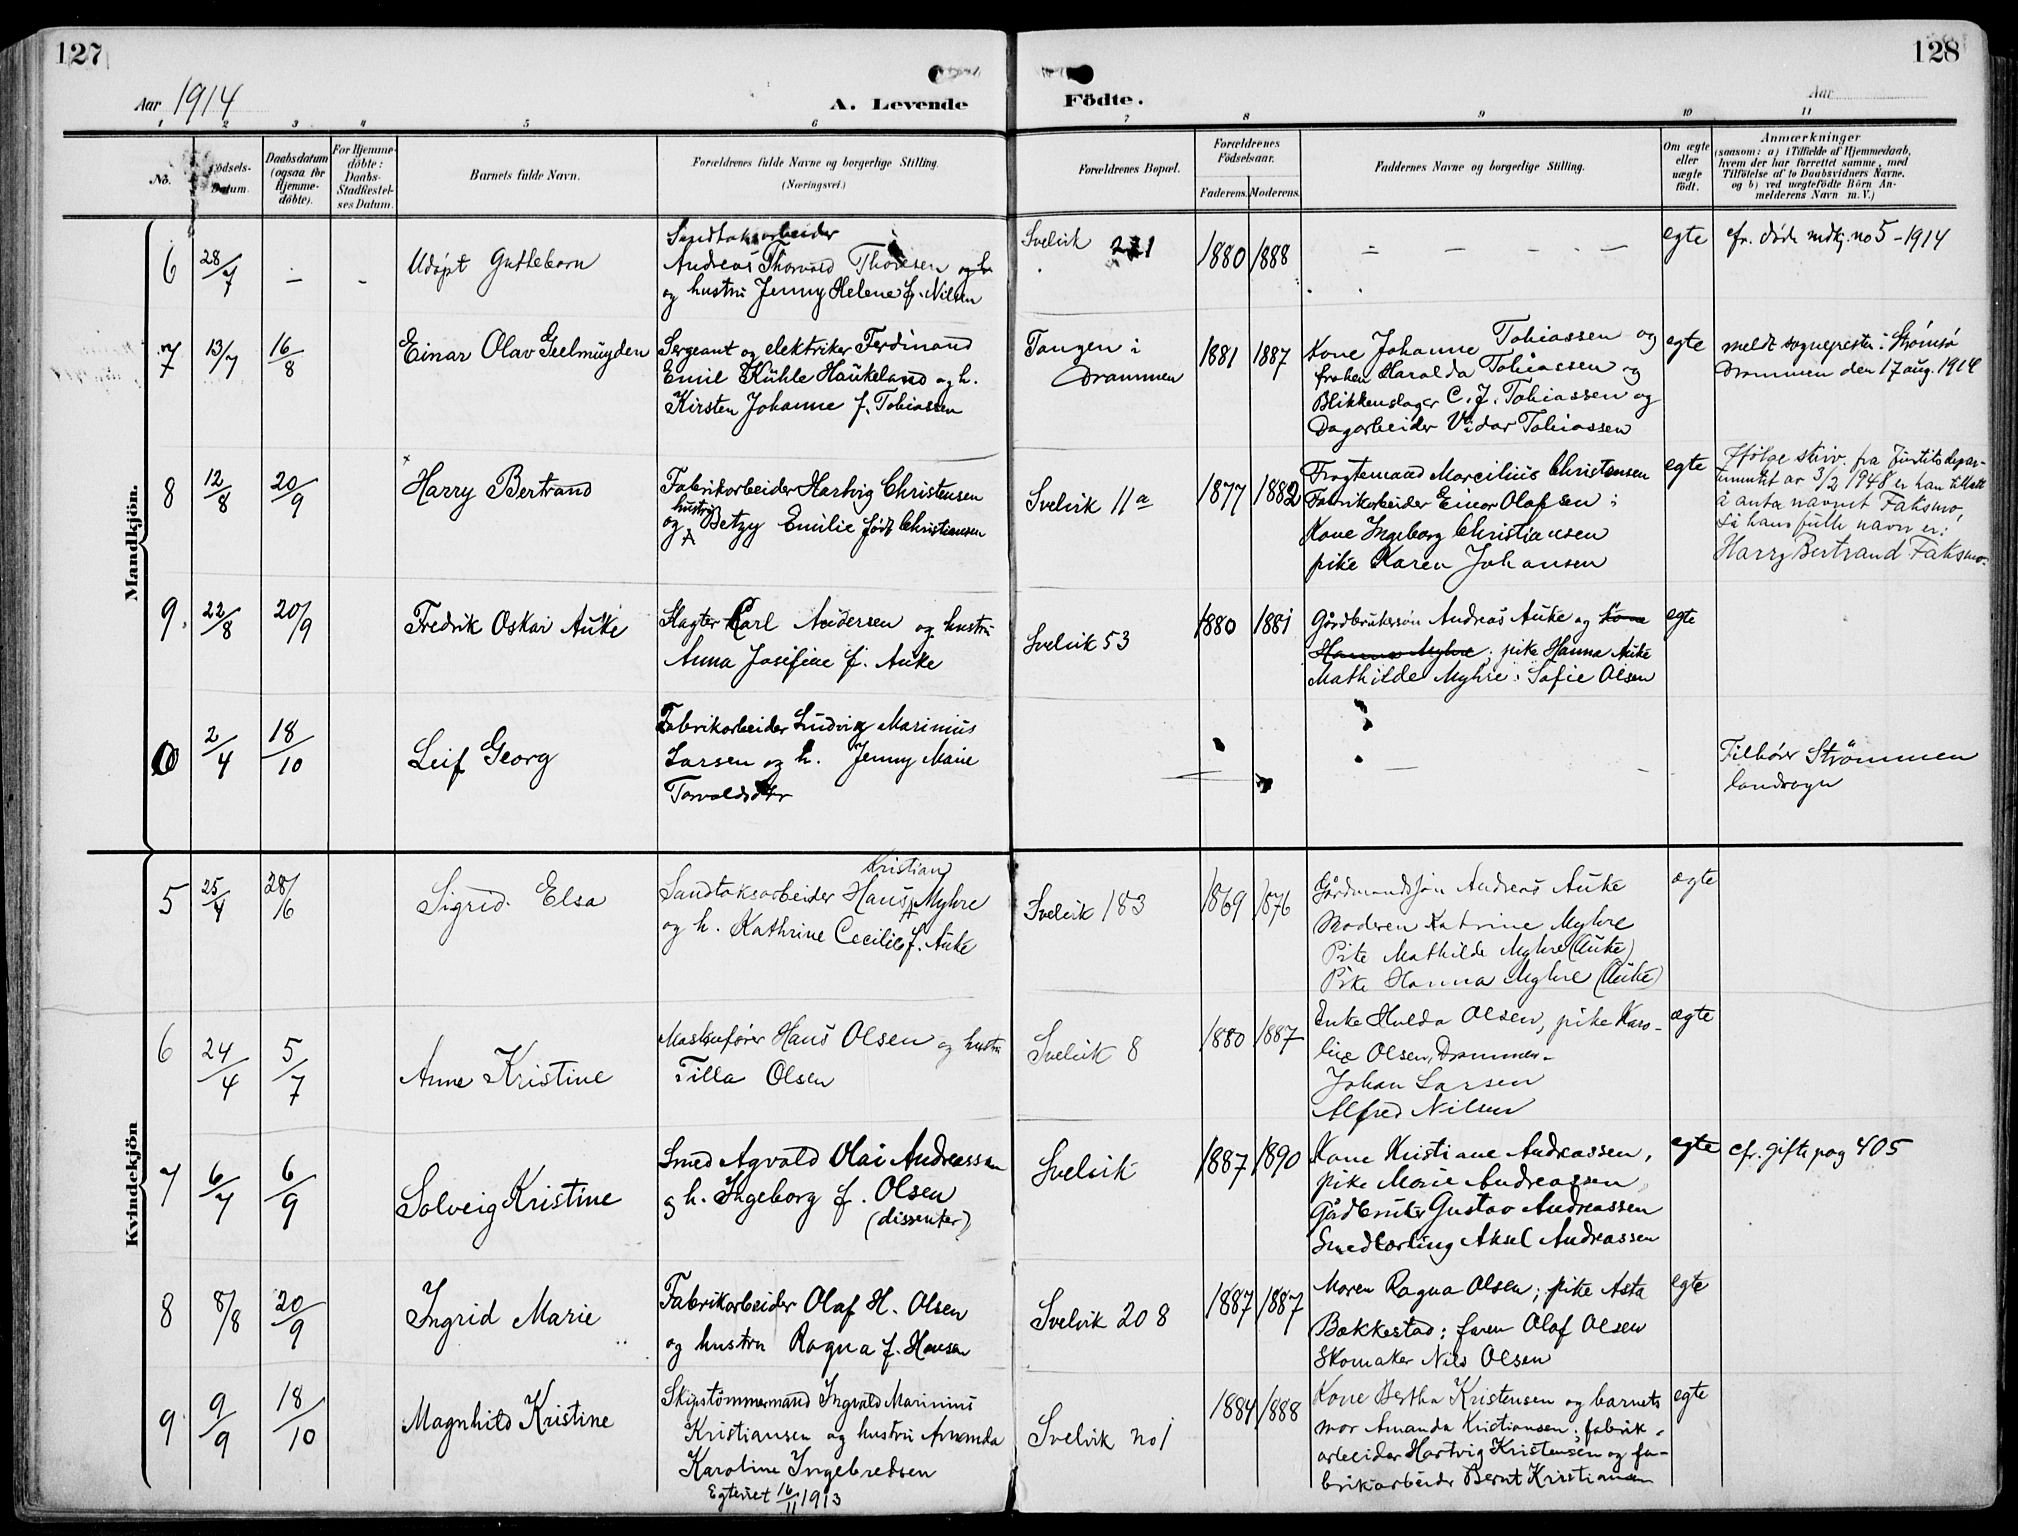 127
128
Aar 1914
A. Levende
Födte.
Aar
1 2 3 4 5 6 7 8 9 10 11
No.
Födsels-Datum.
Daabsdatum (ogsaa for Hjemme-döbte).
For Hjemme-döbte: Daabs-Stadfæstel-ses Datum.
Barnets fulde Navn.
Forældrenes fulde Navne og borgerlige Stilling.
(Næringsvei.)
Forældrenes Bopæl.
Forældrenes Födselsaar.
Faderens. Moderens.
Faddernes Navne og borgerlige Stilling.
Om ægte eller uægte födt.
Anmærkninger
(saasom: a) i Tilfælde af Hjemmedaab, hvem der har forrettet samme, med Tilföielse af to Daabsvidners Navne. og b) ved uægtefödte Börn An-melderens Navn m. V.)
Mandkjön.
6 28/7 – – Udøpt Guttebarn
Sandtaksarbeider
Andreas Thorvald Thoresen
og hustru Jenny Helene f. Nilsen
Svelvik 271
1880 1888
– – – – –
egte
cfr. døde mdkj. no 5 - 1914
7 13/7 16/8 Einar Olav Geelmuyden
Sergeant og elektriker Ferdinand
Emil Kühle Haukeland og h.
Kirsten Johanne f. Tobiassen
Tangen i
Drammen
1881 1887
Kone Johanne Tobiassen og
frøken Haralda Tobiassen og
Blikkenslager C. J. Tobiassen og
Dagarbeider Vidar Tobiassen
egte
meldt sognepresten i Strømsø
Drammen den 17 aug. 1914
8 12/8 20/9 Harry Bertrand
Fabrikarbeider Hartvig Christensen
og hustru Betzy Emilie født Christiansen
Svelvik 11a
1877 1882
Fragtemand Marcilius Christensen
Fabrikarbeider Einar Olafsen;
Kone Ingeborg Christiansen
pike Karen Johansen
egte
Ifølge skriv. fra Justitsdepar-
tementet av 3/2 1948 er han tillatt
å anta navnet Faksmo,
så hans fulle navn er:
Harry Bertrand Faksmo.
9. 22/8 20/9 Fredrik Oskar Auke
Slagter Carl Andersen og hustru
Anna Josefine f. Auke
Svelvik 53
1880 1881
Gårdbrukersøn Andreas Auke og kone
Hanna Myhre; pike Hanna Auke
Mathilde Myhre: Sofie Olsen
egte
10 2/4 18/10 Leif Georg
Fabrikarbeider Ludvig Marinius
Larsen og h. Jenny Marie
Torvaldsdtr
– – –
Tilhører Strömmen
landsogn
Kvindekjön
5 25/4 28/6 Sigrid Elsa
Sandtaksarbeider Hans Kristian Myhre
og h. Kathrine Cecilie f. Auke
Svelvik 183
1869 1876
Gårdmandssøn Andreas Auke
Moderen Katrine Myhre
Pike Mathilde Myhre (Auke)
Pike Hanna Myhre (Auke)
ægte
6 24/4 5/7 Anne Kristine
Maskinfører Hans Olsen og hustru
Tilla Olsen
Svelvik 8
1880 1887
Enke Hulda Olsen, pike Karo-
line Olsen, Drammen-
Johan Larsen
Alfred Nilsen
ægte
7 6/7 6/9 Solveig Kristine
Smed Agvald Olai Andreassen
og h. Ingeborg f. Olsen
(dissenter)
Svelvik
1887 1890
Kone Kristiane Andreassen,
pike Marie Andreassen,
Gårdbruker Gustav Andreassen
Smedlærling Aksel Andreassen
egte
cfr. gifte pag 405
8 8/8 20/9 Ingrid Marie
Fabrikarbeider Olaf H. Olsen
og hustru Ragna f. Hansen
Svelvik 208
1887 1887
Moren Ragna Olsen; pike Asta
Bakkestad; faren Olaf Olsen
Skomaker Nils Olsen
egte
9. 9/9 18/10 Magnhild Kristine
Skipstømmermand Ingvald Marinius
Kristiansen og hustru Amanda
Karoline Ingebredsen
Egteviet 16/11 1913
Svelvik no 1
1884 1888
Kone Bertha Kristensen og barnets
mor Amanda Kristiansen; fabrik-
arbeider Hartvig Kristensen og fa-
brikarbeider Bernt Kristiansen
egte